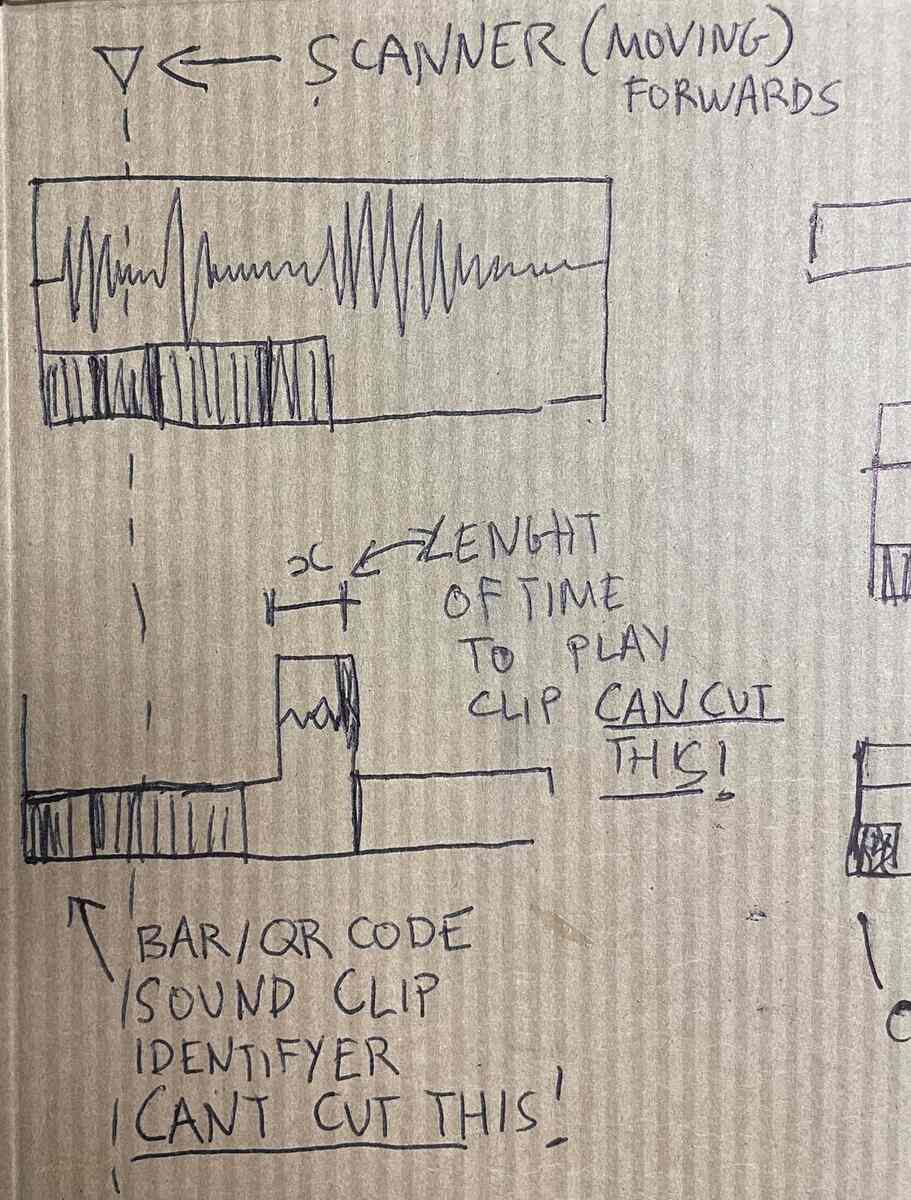 SCANNER (MOVING)
FORWARDS
x
LENGHT
OF TIME
TO PLAY
CLIP CAN CUT
THIS!
BAR/QR CODE
/SOUND CLIP
IDENTIFYER
CANT CUT THIS!